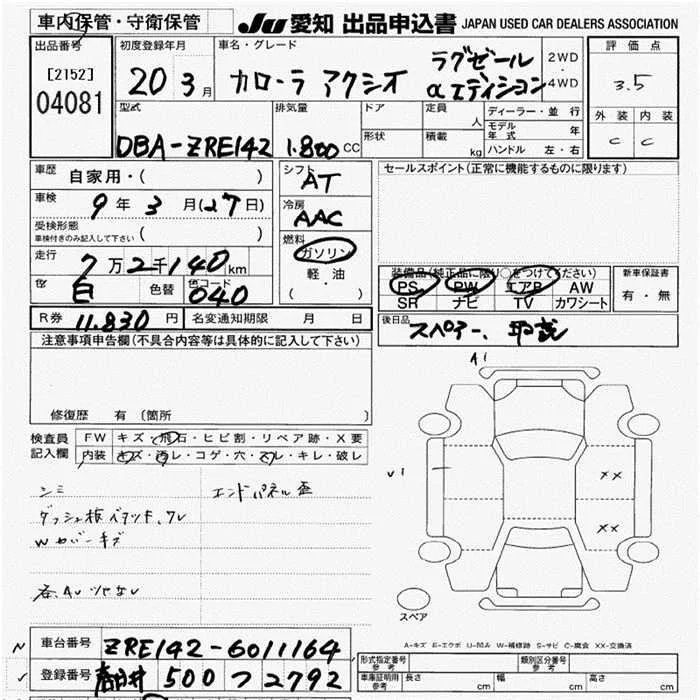 車内保管・守衛保管
Ju 愛知 出品申込書 JAPAN USED CAR DEALERS ASSOCIATION
出品番号 初度登録年月 車名・グレード 評価点
[2152] 20 3月 カローラ アクシオ ラグゼール 2WD
04081 αエディション 4WD 3.5
型式 排気量 ドア 定員 人 ディーラー・並行 外装 内装
DBA-ZRE142 1.800cc 形状 積載 kg モデル年式 年 C C
ハンドル 左・右
車歴 自家用・( ) シフト AT セールスポイント(正常に機能するものに限ります)
車検 9年3月(27日) 冷房 AAC
受検形態 ( )
車検付きのみ記入して下さい
燃料 ガソリン
走行 7万2千140km 軽・油
( ・ )
色 白 色替 色コード 040
装備品(純正品に限り○をつけてください) 新車保証書
PS PW エアB AW 有・無
SR ナビ TV カワシート
R券 11.830円 名変通知期限 月 日
後日品 スペアー、取説
注意事項申告欄(不具合内容等は具体的に記入して下さい)
修復歴 有 (箇所 )
検査員記入欄 FW キズ・飛石・ヒビ割・リペア跡・X要
内装 キズ・汚レ・コゲ・穴・スレ・キレ・破レ
シミ エンドパネル歪
A1
V1
XX
XX
スペア
A-キズ E-エクボ U-凹み W-補修跡 S-サビ C-腐食 XX-交換済
車台番号 ZRE142-6011164
登録番号 500 つ 2792
形式指定番号 参考 類別区分番号 参考
車庫証明用 参考 長さ cm 幅 cm 高さ cm